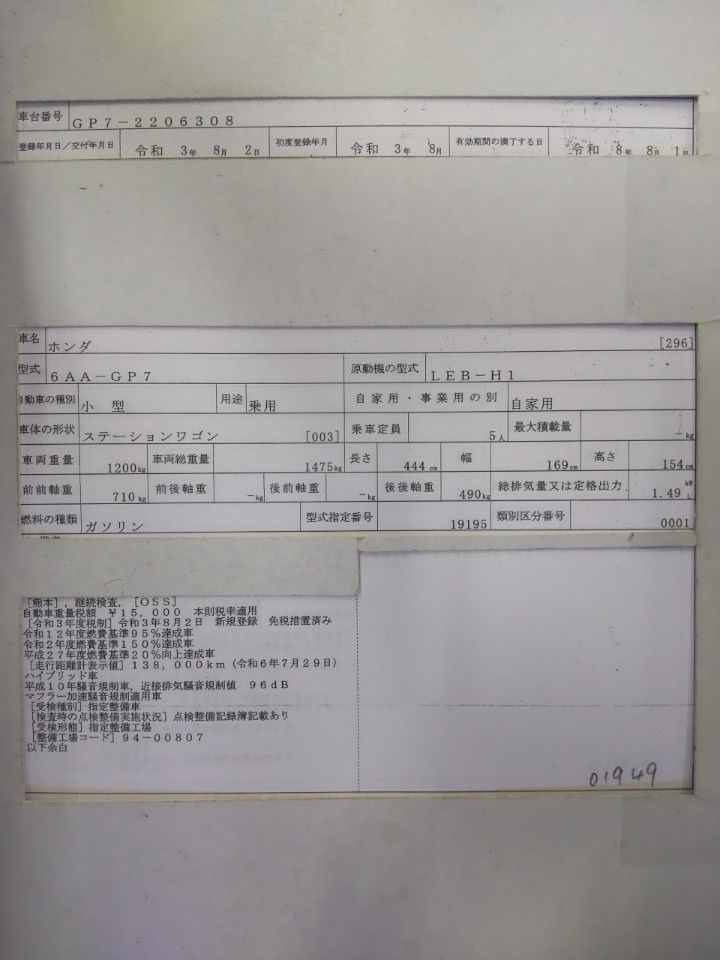 車台番号 GP7-2206308
登録年月日/交付年月日 令和 3年 8月 2日 初度登録年月 令和 3年 8月 有効期間の満了する日 令和 8年 8月 1日
車名 ホンダ [296]
型式 6AA-GP7 原動機の型式 LEB-H1
自動車の種別 小型 用途 乗用 自家用・事業用の別 自家用
車体の形状 ステーションワゴン [003] 乗車定員 5人 最大積載量 -kg
車両重量 1200kg 車両総重量 1475kg 長さ 444cm 幅 169cm 高さ 154cm
前前軸重 710kg 前後軸重 -kg 後前軸重 -kg 後後軸重 490kg 総排気量又は定格出力 1.49 kW L
燃料の種類 ガソリン 型式指定番号 19195 類別区分番号 0001
[熊本],継続検査,[OSS]
自動車重量税額 ¥15,000 本則税率適用
[令和3年度税制]令和3年8月2日 新規登録 免税措置済み
令和12年度燃費基準95%達成車
令和2年度燃費基準150%達成車
平成27年度燃費基準20%向上達成車
[走行距離計表示値]138,000km(令和6年7月29日)
ハイブリッド車
平成10年騒音規制車,近接排気騒音規制値 96dB
マフラー加速騒音規制適用車
[受検種別]指定整備車
[検査時の点検整備実施状況]点検整備記録簿記載あり
[受検形態]指定整備工場
[整備工場コード]94-00807
以下余白
01949